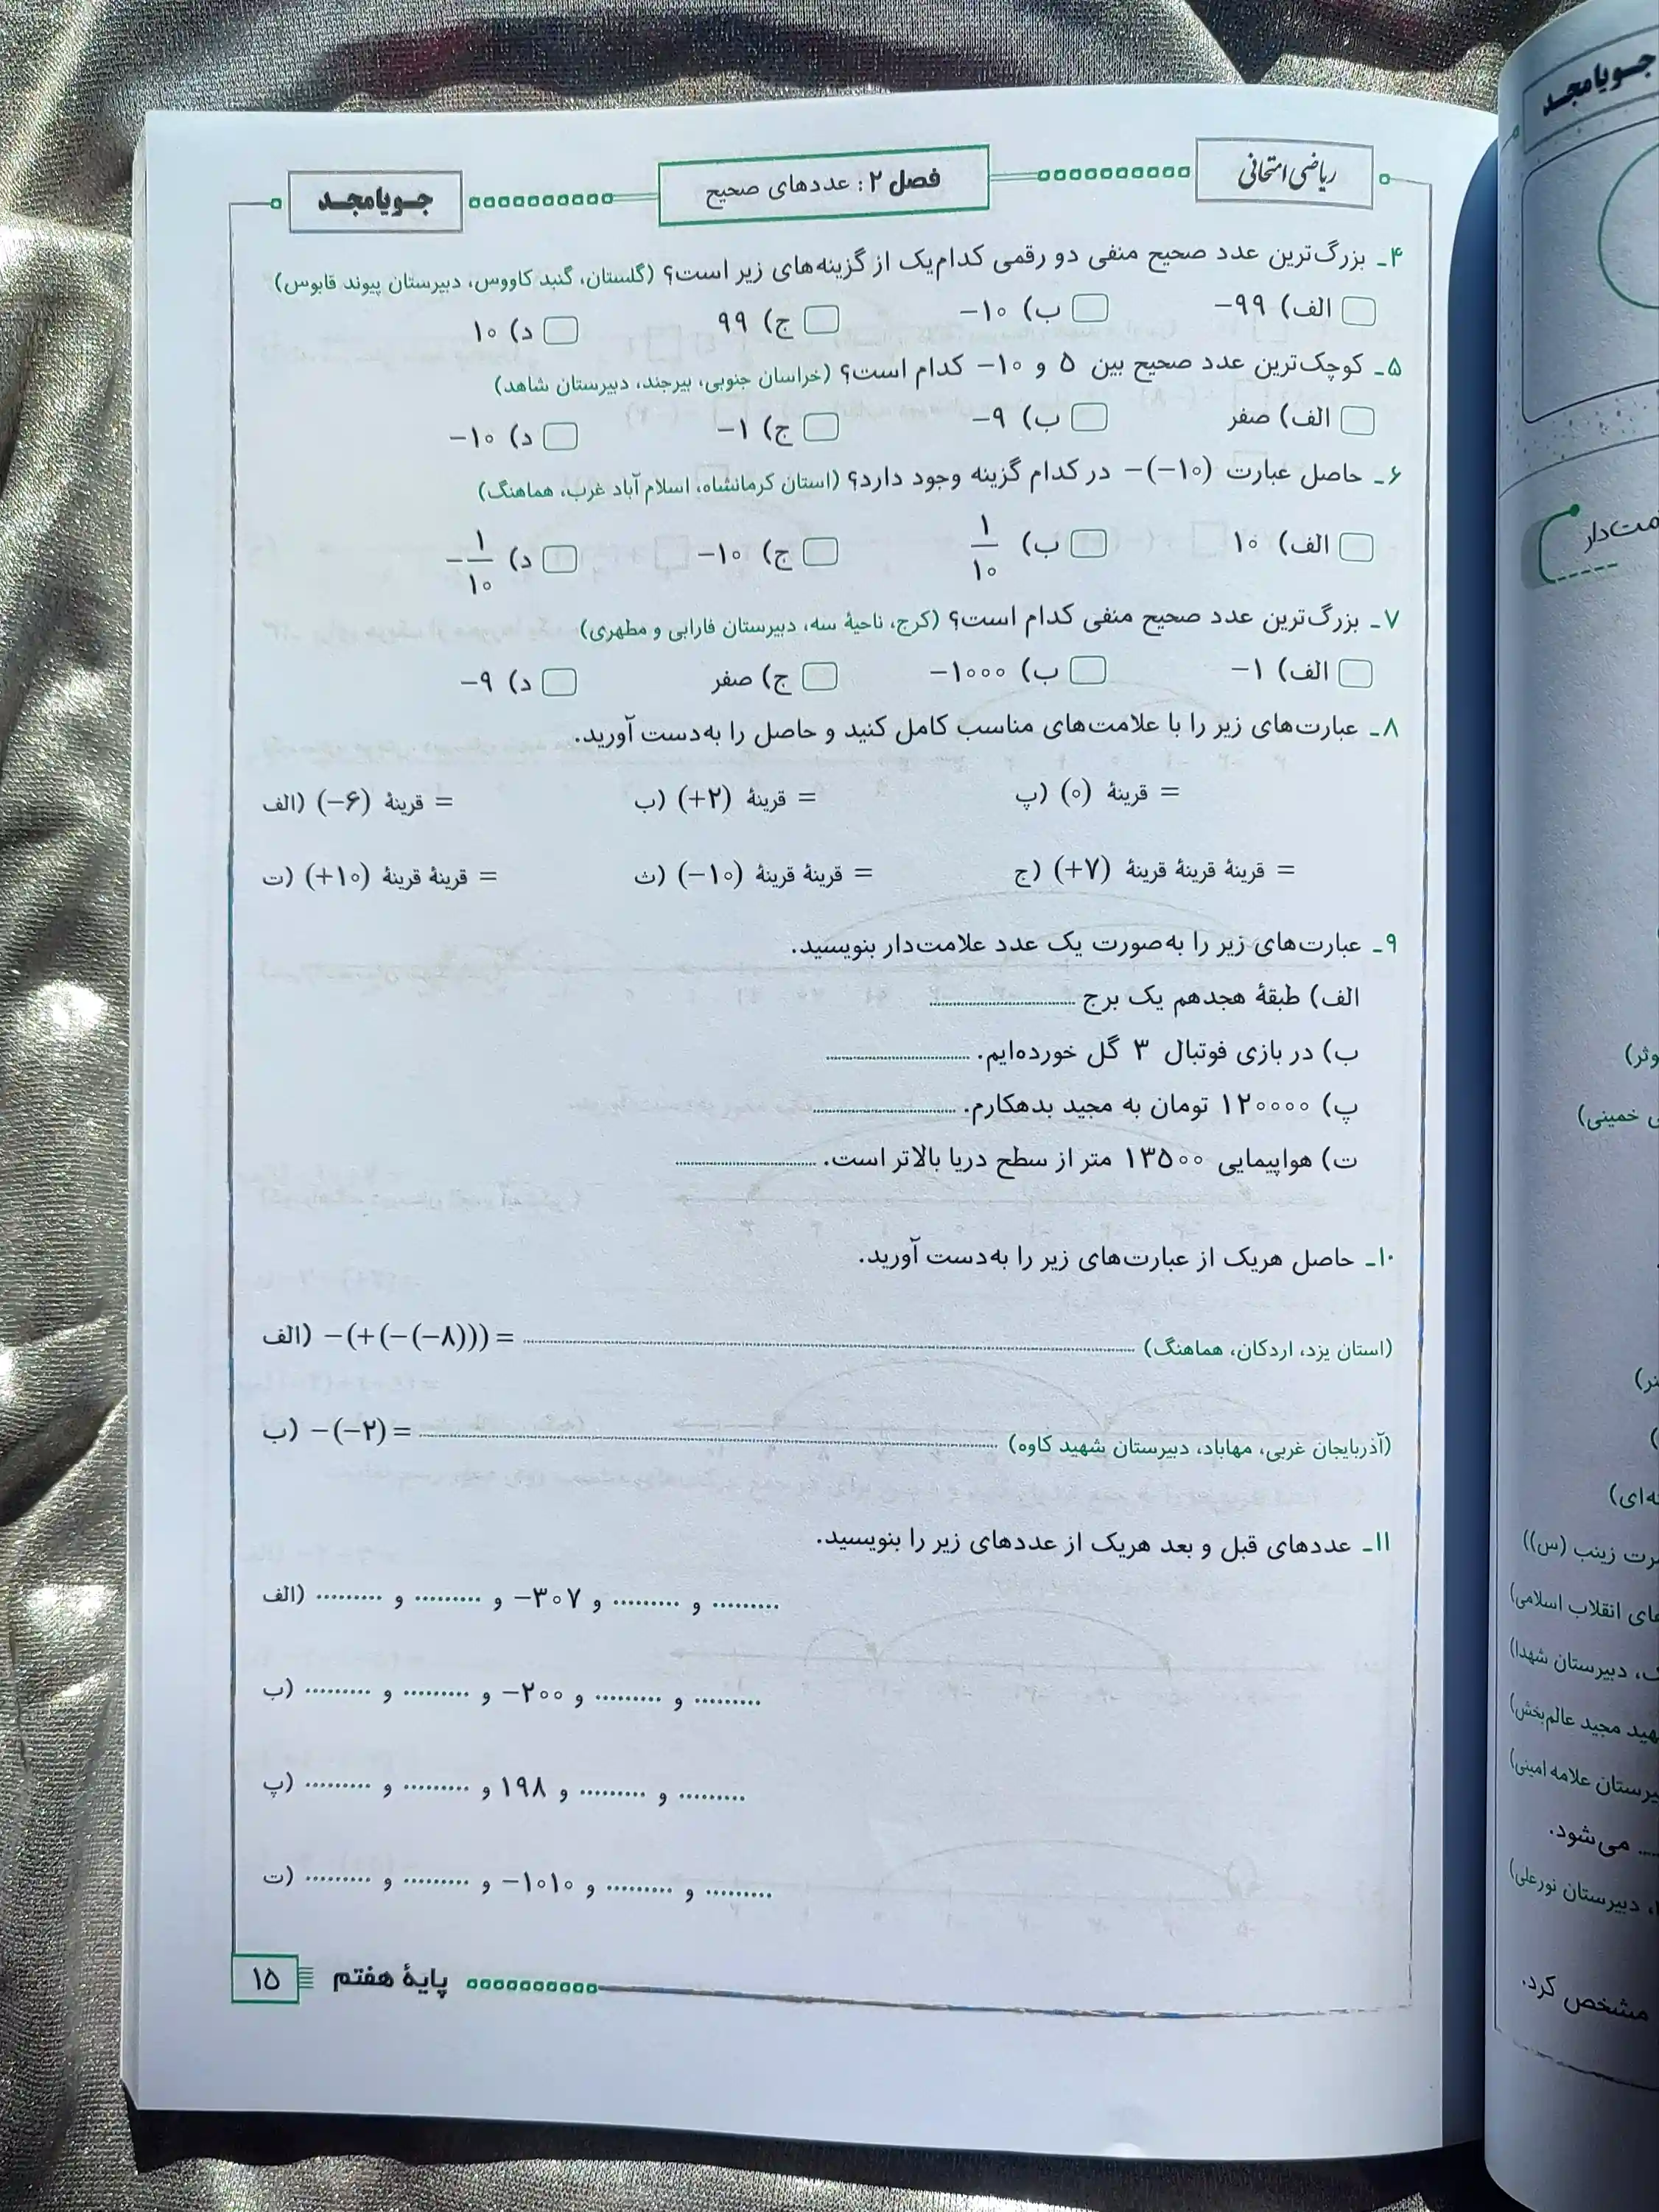 ریاضی امتحانی
فصل ۲: عددهای صحیح
جویامجد
۴ـ بزرگ‌ترین عدد صحیح منفی دو رقمی کدام‌یک از گزینه‌های زیر است؟ (گلستان، گنبد کاووس، دبیرستان پیوند قابوس)
الف) −۹۹ ب) −۱۰ ج) ۹۹ د) ۱۰
۵ـ کوچک‌ترین عدد صحیح بین ۵ و −۱۰ کدام است؟ (خراسان جنوبی، بیرجند، دبیرستان شاهد)
الف) صفر ب) −۹ ج) −۱ د) −۱۰
۶ـ حاصل عبارت −(−۱۰) در کدام گزینه وجود دارد؟ (استان کرمانشاه، اسلام آباد غرب، هماهنگ)
الف) ۱۰ ب) ۱/۱۰ ج) −۱۰ د) −۱/۱۰
۷ـ بزرگ‌ترین عدد صحیح منفی کدام است؟ (کرج، ناحیهٔ سه، دبیرستان فارابی و مطهری)
الف) −۱ ب) −۱۰۰۰ ج) صفر د) −۹
۸ـ عبارت‌های زیر را با علامت‌های مناسب کامل کنید و حاصل را به‌دست آورید.
الف) (−۶) قرینهٔ = ب) (+۲) قرینهٔ = پ) (۰) قرینهٔ =
ت) (+۱۰) قرینهٔ قرینهٔ = ث) (−۱۰) قرینهٔ قرینهٔ = ج) (+۷) قرینهٔ قرینهٔ قرینهٔ =
۹ـ عبارت‌های زیر را به‌صورت یک عدد علامت‌دار بنویسید.
الف) طبقهٔ هجدهم یک برج ..............................
ب) در بازی فوتبال ۳ گل خورده‌ایم. ..............................
پ) ۱۲۰۰۰۰ تومان به مجید بدهکارم. ..............................
ت) هواپیمایی ۱۳۵۰۰ متر از سطح دریا بالاتر است. ..............................
۱۰ـ حاصل هریک از عبارت‌های زیر را به‌دست آورید.
الف) −(+(−(−۸))) = .............................. (استان یزد، اردکان، هماهنگ)
ب) −(−۲) = .............................. (آذربایجان غربی، مهاباد، دبیرستان شهید کاوه)
۱۱ـ عددهای قبل و بعد هریک از عددهای زیر را بنویسید.
الف) ......... و ......... و −۳۰۷ و ......... و .........
ب) ......... و ......... و −۲۰۰ و ......... و .........
پ) ......... و ......... و ۱۹۸ و ......... و .........
ت) ......... و ......... و −۱۰۱۰ و ......... و .........
۱۵
پایهٔ هفتم
جویامجد
خمینی)
رت زینب (س))
های انقلاب اسلامی)
دبیرستان شهدا)
هید مجید عالم‌بخش)
یرستان علامه امینی)
می‌شود.
، دبیرستان نورعلی)
مشخص کرد.